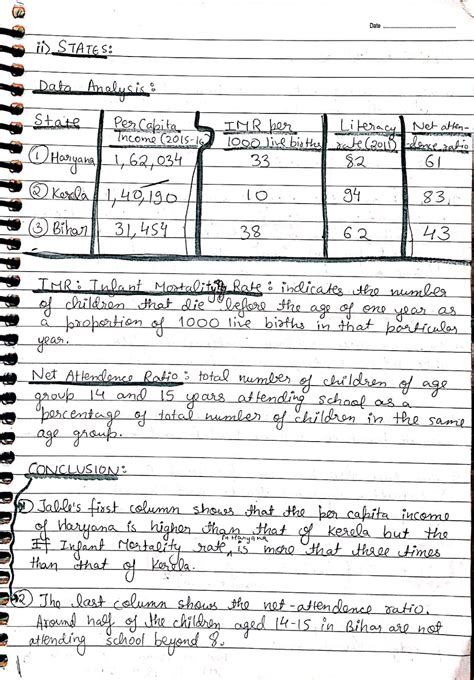 Date
ii) STATES:
Data Analysis:
State | Per Capita Income (2015-16) | IMR per 1000 live births | Literacy rate (2011) | Net atten-dence ratio
① Haryana | 1,62,034 | 33 | 82 | 61
② Kerala | 1,40,190 | 10 | 94 | 83
③ Bihar | 31,454 | 38 | 62 | 43
IMR: Infant Mortality Rate: indicates the number
of children that die before the age of one year as
a proportion of 1000 live births in that particular
year.
Net Attendence Ratio: total number of children of age
group 14 and 15 years attending school as a
percentage of total number of children in the same
age group.
CONCLUSION:
① Table's first column shows that the per capita income
of Haryana is higher than that of kerela but the
If Infant Mortality rate in Haryana is more that three times
than that of Kerela.
② The last column shows the net-attendence ratio.
Around half of the children aged 14-15 in Bihar are not
attending school beyond 8.